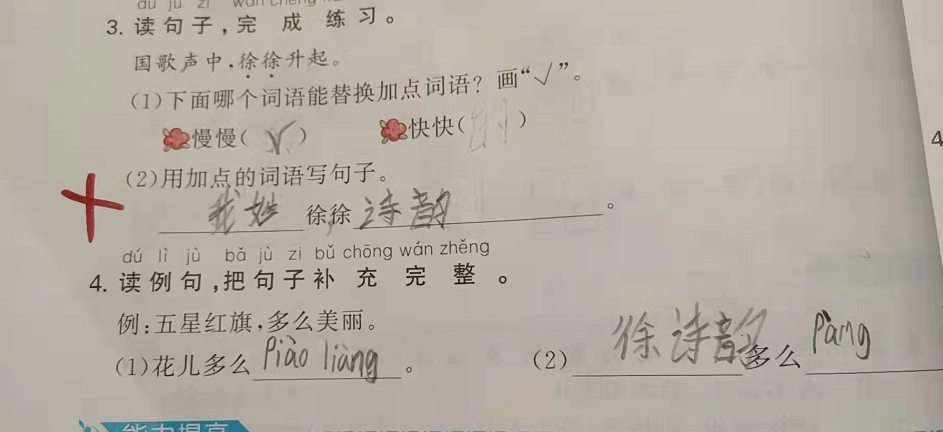 3. 读句子，完成练习。
国歌声中，徐徐升起。
(1)下面哪个词语能替换加点词语？画“√”。
慢慢( √ ) 快快( )
(2)用加点的词语写句子。
我姓徐徐,诗韵。
dú lì jù bǎ jù zi bǔ chōng wán zhěng
4. 读例句，把句子补充完整。
例：五星红旗，多么美丽。
(1)花儿多么 Piào liàng 。 (2) 徐诗韵多么 Pàng
能力提高
4